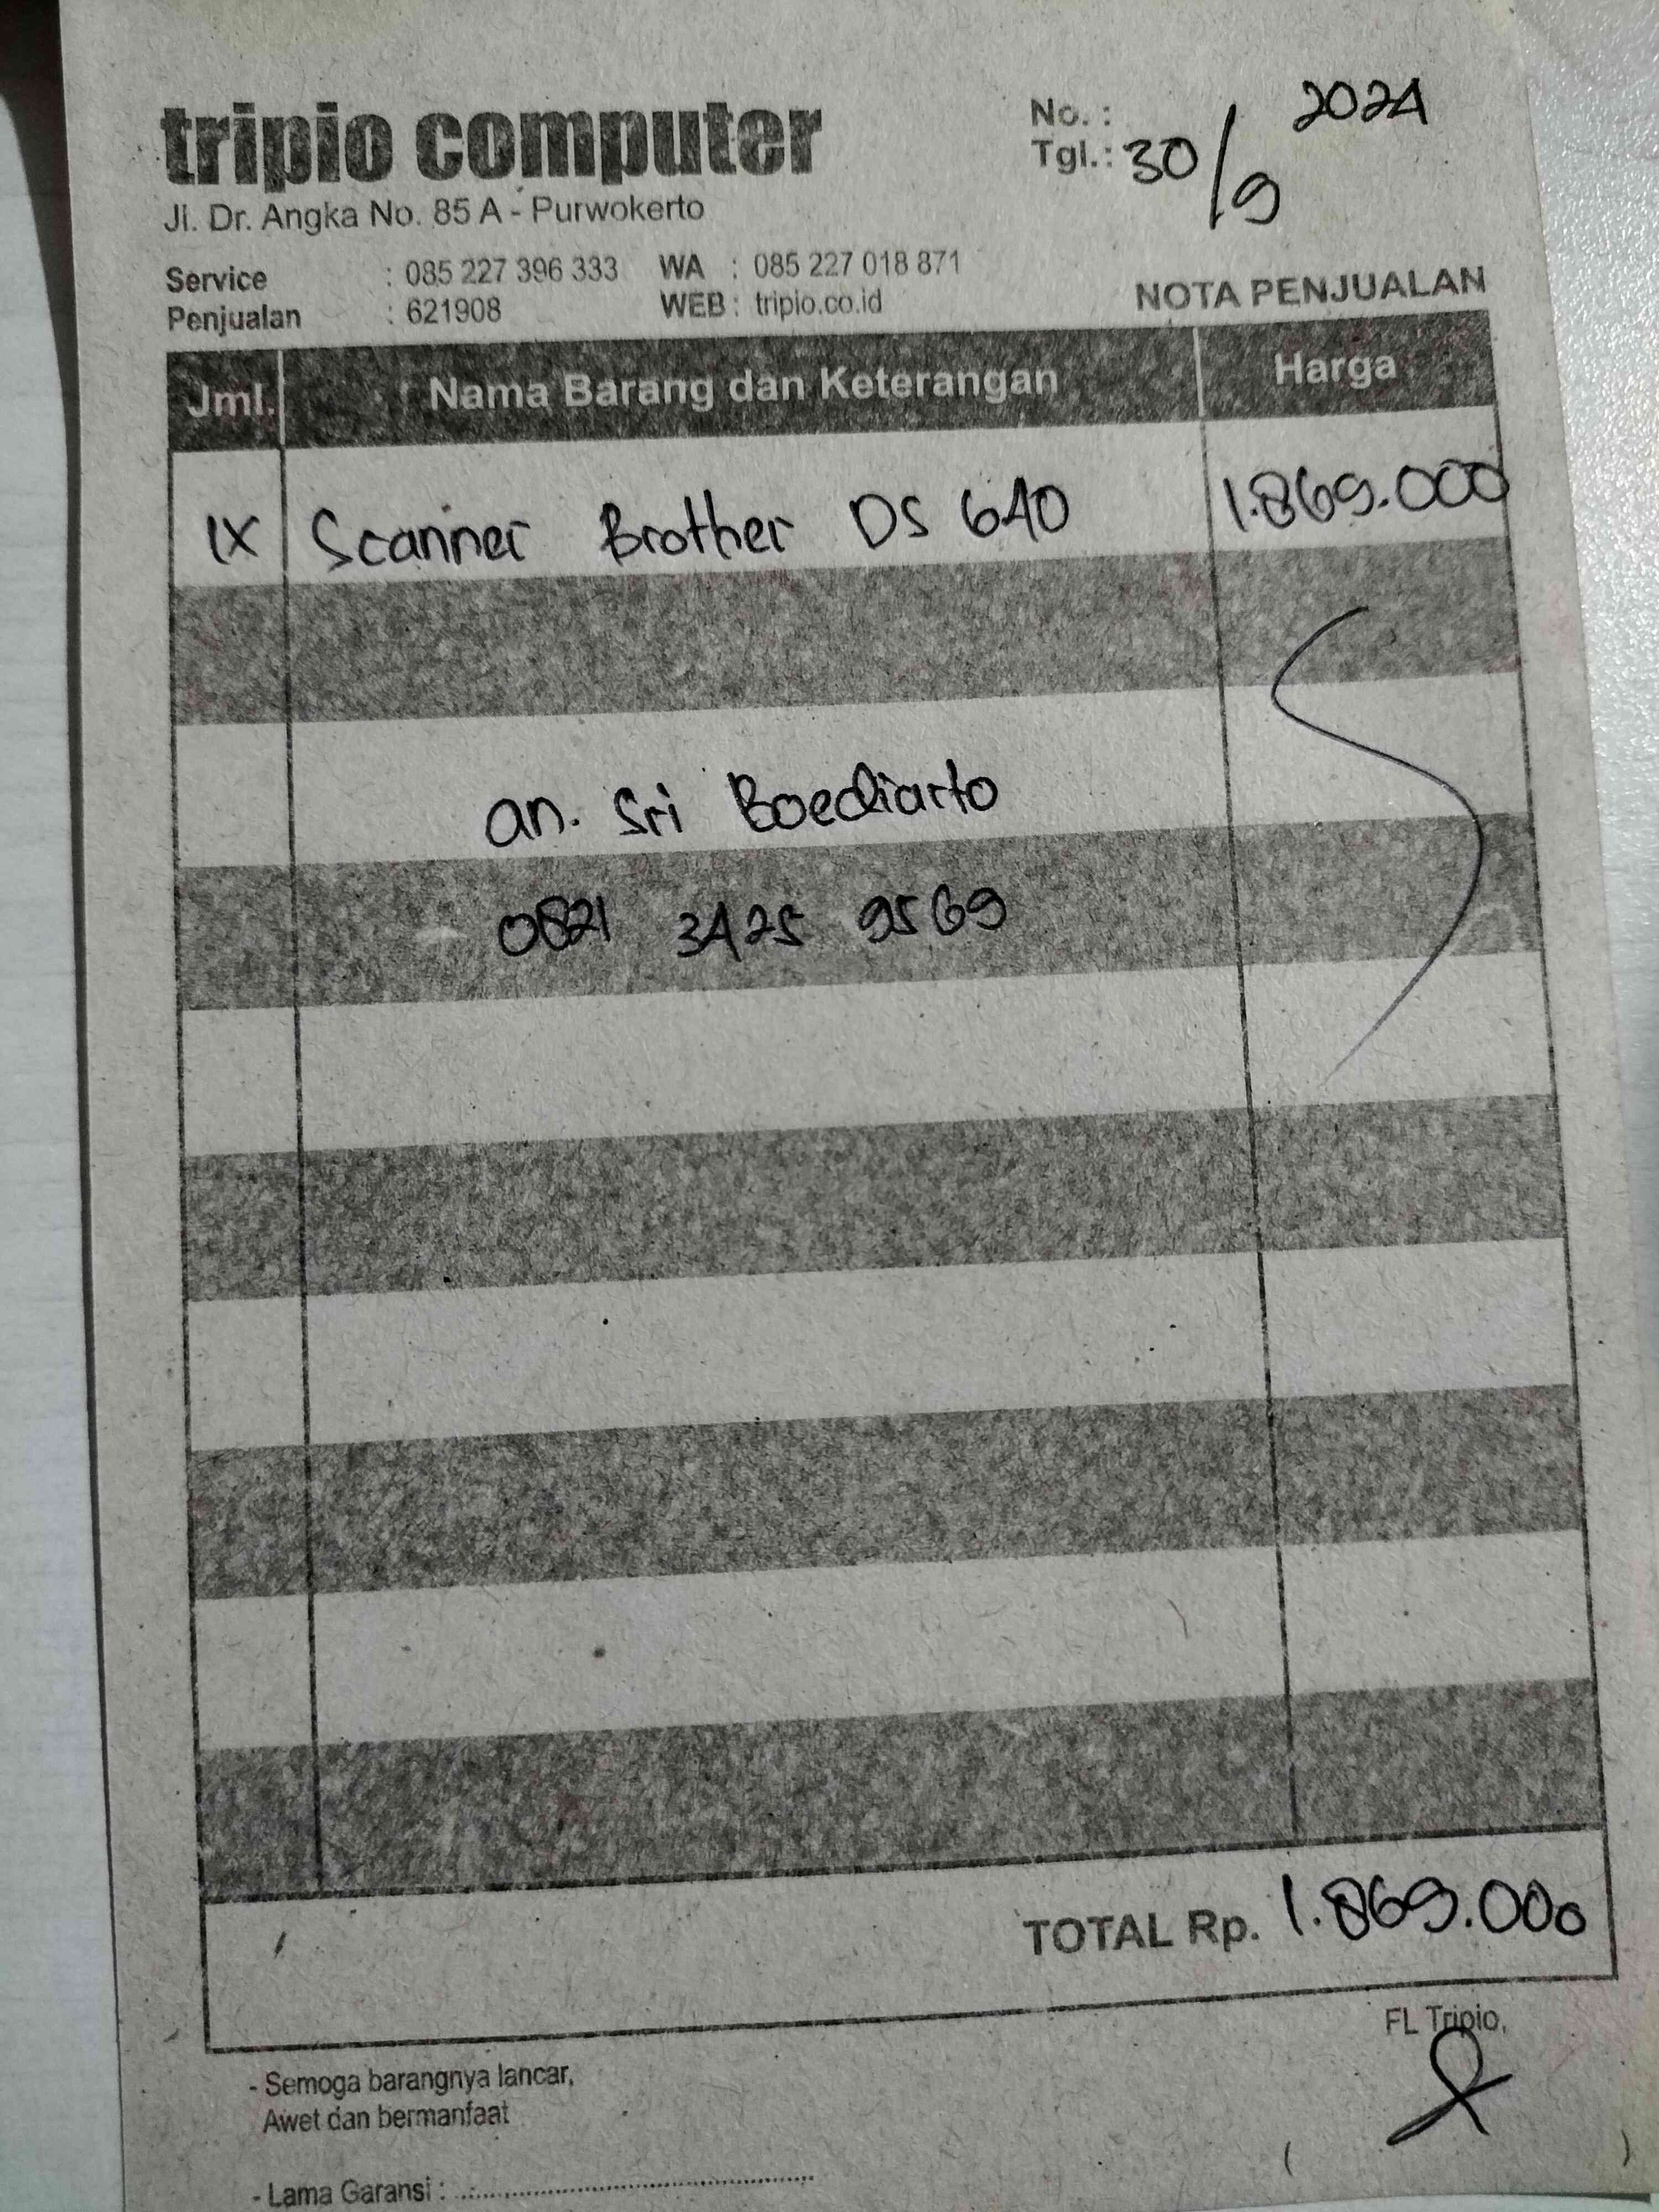 tripio computer
Jl. Dr. Angka No. 85 A - Purwokerto
No. :
Tgl.: 30/9 2024
Service : 085 227 396 333 WA : 085 227 018 871
Penjualan : 621908 WEB : tripio.co.id
NOTA PENJUALAN
Jml. Nama Barang dan Keterangan Harga
1X Scanner Brother DS 640 1.869.000
an. Sri Boediarto
0821 3425 9569
TOTAL Rp. 1.869.000
FL Tripio,
- Semoga barangnya lancar,
Awet dan bermanfaat
( )
- Lama Garansi : ........................................